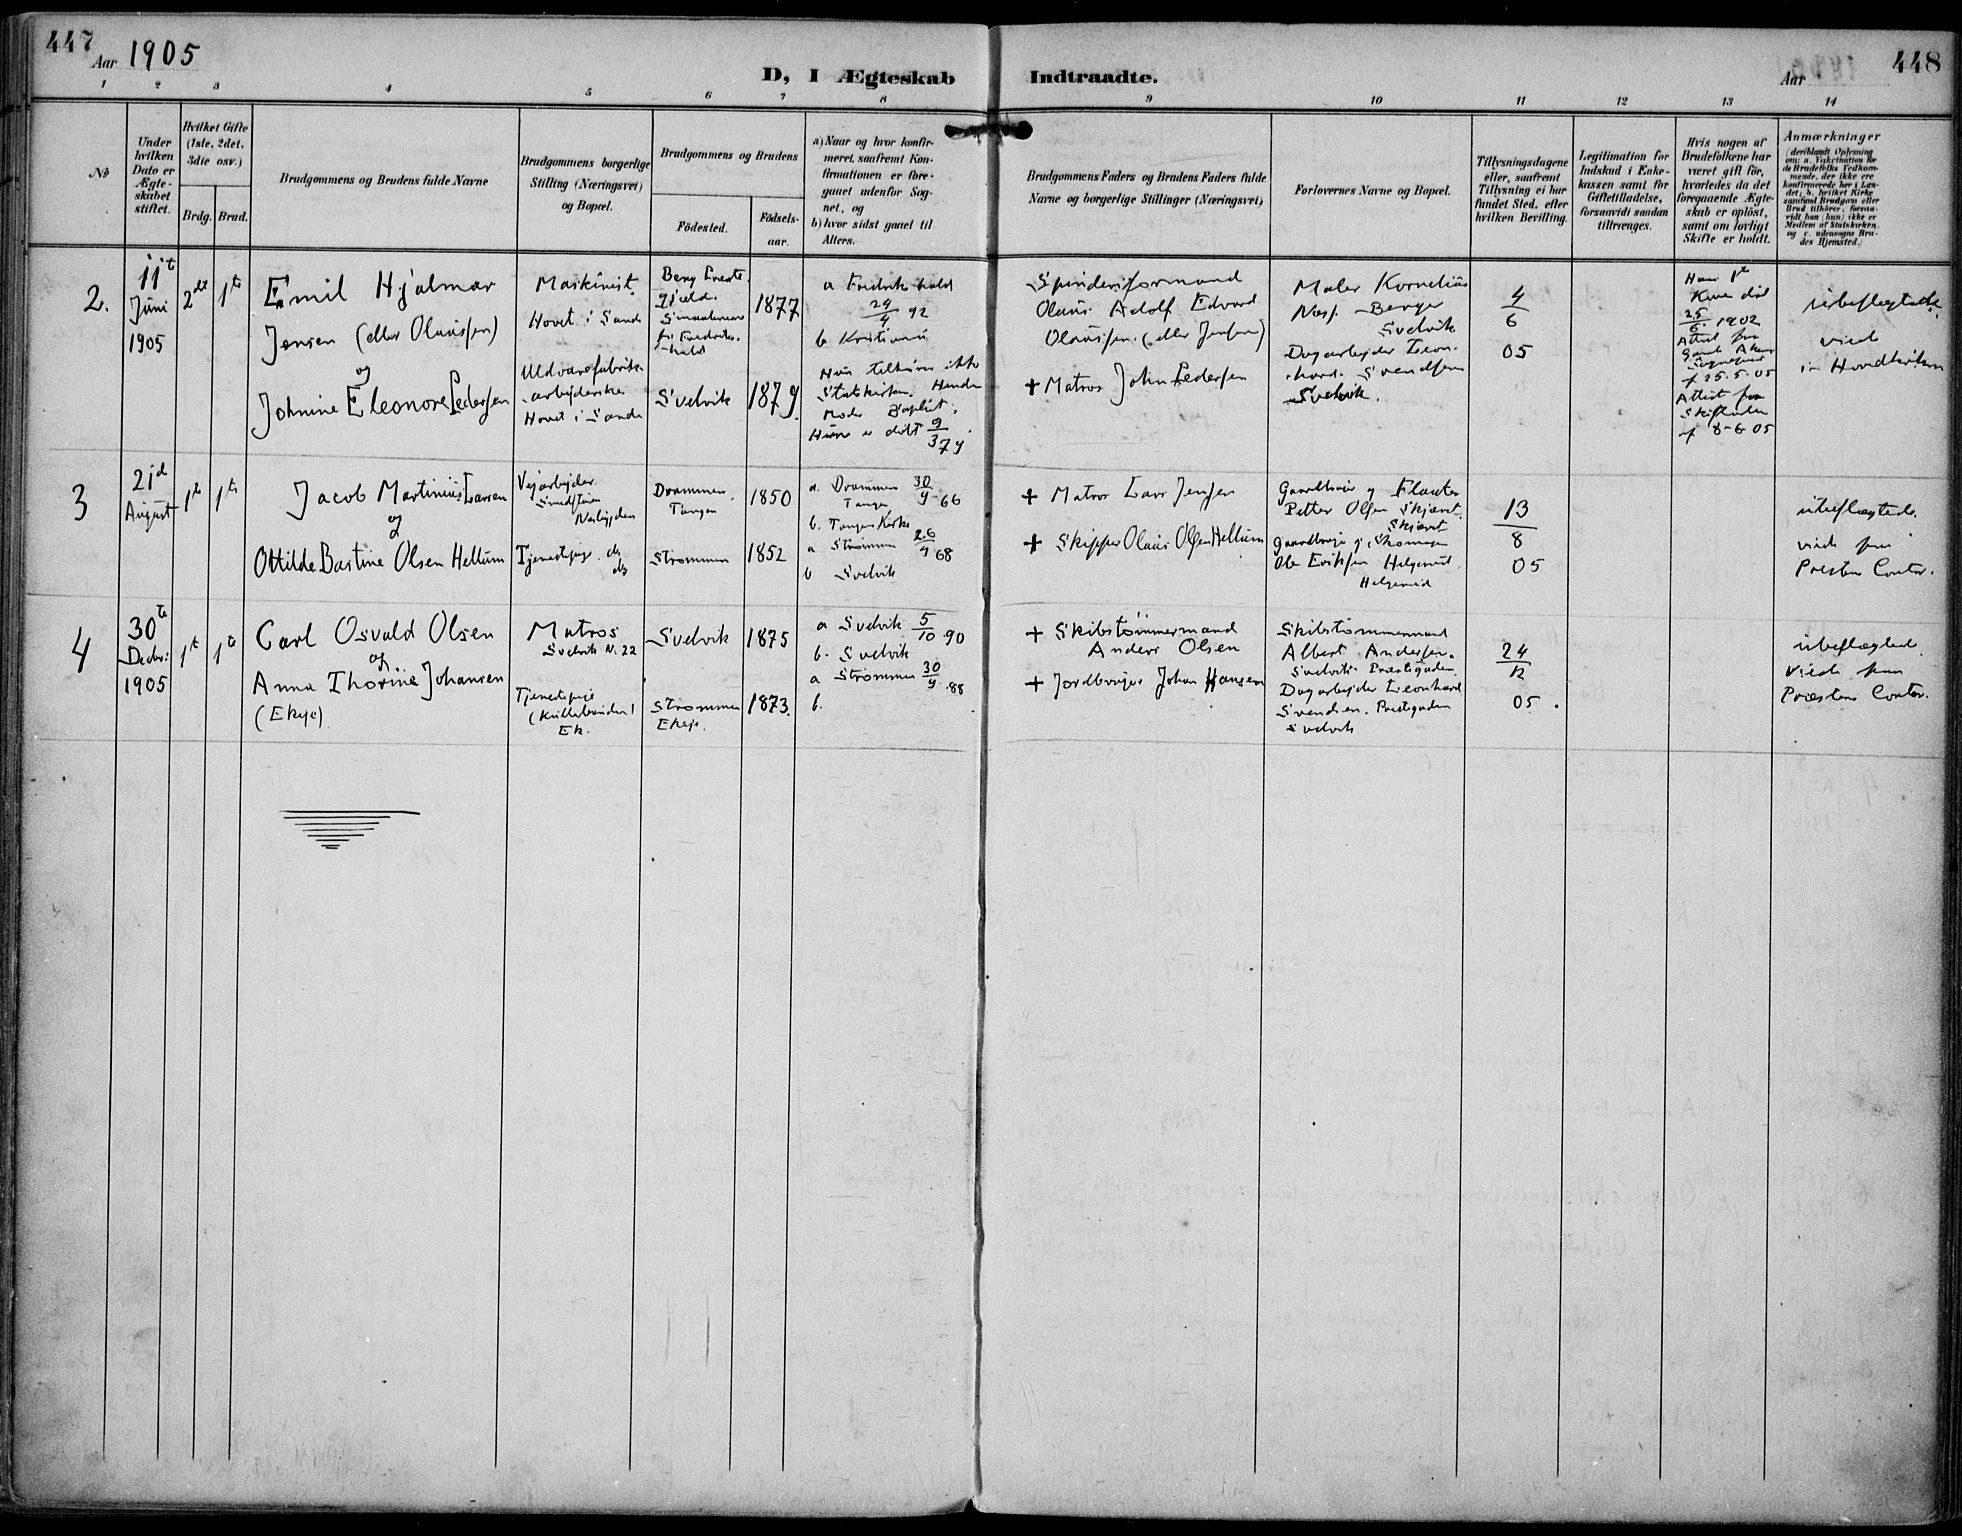 447
Aar 1905
D, I Ægteskab Indtraadte.
Aar
448
1 2 3 4 5 6 7 8 9 10 11 12 13 14
No
Under
hvilken
Dato er
Ægte-
skabet
stiftet.
Hvilket Gifte
(1ste, 2det,
3die osv.)
Brdg. Brud.
Brudgommens og Brudens fulde Navne
Brudgommens borgerlige
Stilling (Næringsvei)
og Bopæl.
Brudgommens og Brudens
Födested.
Födsels-
aar.
a) Naar og hvor konfir-
meret, saafremt Kon-
firmationen er fore-
gaaet udenfor Sog-
net, og
b) hvor sidst gaaet til
Alters.
Brudgommens Faders og Brudens Faders fulde
Navne og borgerlige Stillinger (Næringsvei)
Forlovernes Navne og Bopæl.
Tillysningsdagene
eller, saafremt
Tillysning ei har
fundet Sted, efter
hvilken Bevilling.
Legitimation for
Indskud i Enke-
kassen samt for
Giftetilladelse,
forsaavidt saadan
tiltrænges.
Hvis nogen af
Brudefolkene har
været gift för,
hvorledes da det
foregaaende Ægte-
skab er oplöst,
samt om lovligt
Skifte er holdt.
Anmærkninger
(deriblandt Oplysning
om: a. Vakcination for
de Brudefolks Vedkom-
mende, der ikke ere
konfirmerede her i Lan-
det; b. hvilket Kirke-
samfund Brudgom eller
Brud tilhörer, forsaa-
vidt han (hun) ikke er
Medlem af Statskirken,
og c. udensogns Bru-
des Hjemsted.)
2.
11t
Juni
1905
2det 1te
Emil Hjalmar
Jensen (eller Olaussen)
og
Johnine Eleonore Pedersen
Maskinist.
Hovet i Sande
Uldvarefabrik-
arbejderske
Hovet i Sande
Berg
Gjeld.
Smaalenene
Fredriks-
hald
Svelvik
1877
1879.
a Fredrikshald
24/4 92
b Kristiania
Hun tilhører ikke
Statskirken. Hendes
Moder Baptist.
Hun er døbt 9/3 79
Spinderiformand
Olaus Adolf Edvard
Olaussen (eller Jensen)
+ Matros John Pedersen
Maler Kornelius
Berger
Svelvik
Dagarbejder Leon-
hard Svendsen
Svelvik.
4/6
05
Hans 1te
Kone död
25/6 1902
Attest fra
Gamle Akers
Sogneprest
af 25.5.05
Attest fra
Skifteretten
af 8-6 05
ubeslægtede.
viet
i Hovedkirken
3
21d
August
1te 1te
Jacob Martinius Larsen
og
Ottilde Bastine Olsen Hellum
Vejarbejder
Tjenestepige. ds
ds
Drammen.
Tangen
Strømmen
1850
1852
a. Drammen 30/9 66
Tangen
b. Tangen Kirke
a Strømmen 26/9 68
b Svelvik
+ Matros Lars Jensen
+ Skipper Olaus Olsen Hellum
Gaardbruger og
Petter Olsen Skjæret.
Skjæret
Gaardbruger og Skomager
Ole Eriksen
13/8
05
ubeslægtede.
viet paa
Prestens Contor.
4
30te
Decbr.
1905
1te 1te
Carl Osvald Olsen
og
Anna Thorine Johansen
(Ekeje)
Matros
Svelvik N. 22
Tjenestepige
Ek.
Svelvik
Strømmen
Ekeje.
1875
1873.
a Svelvik 5/10 90
b. Svelvik
a Strømmen 30/9 88
b.
+ Skibstømmermand
Anders Olsen
+ Jordbruger Johan Hansen
Skibstømmermand
Albert Andersen.
Svelvik Præstegaden
Dagarbejder Leonhard
Svendsen. Prestegaden
Svelvik
24/12
05.
ubeslægtede.
Viet paa
Præstens Contor.